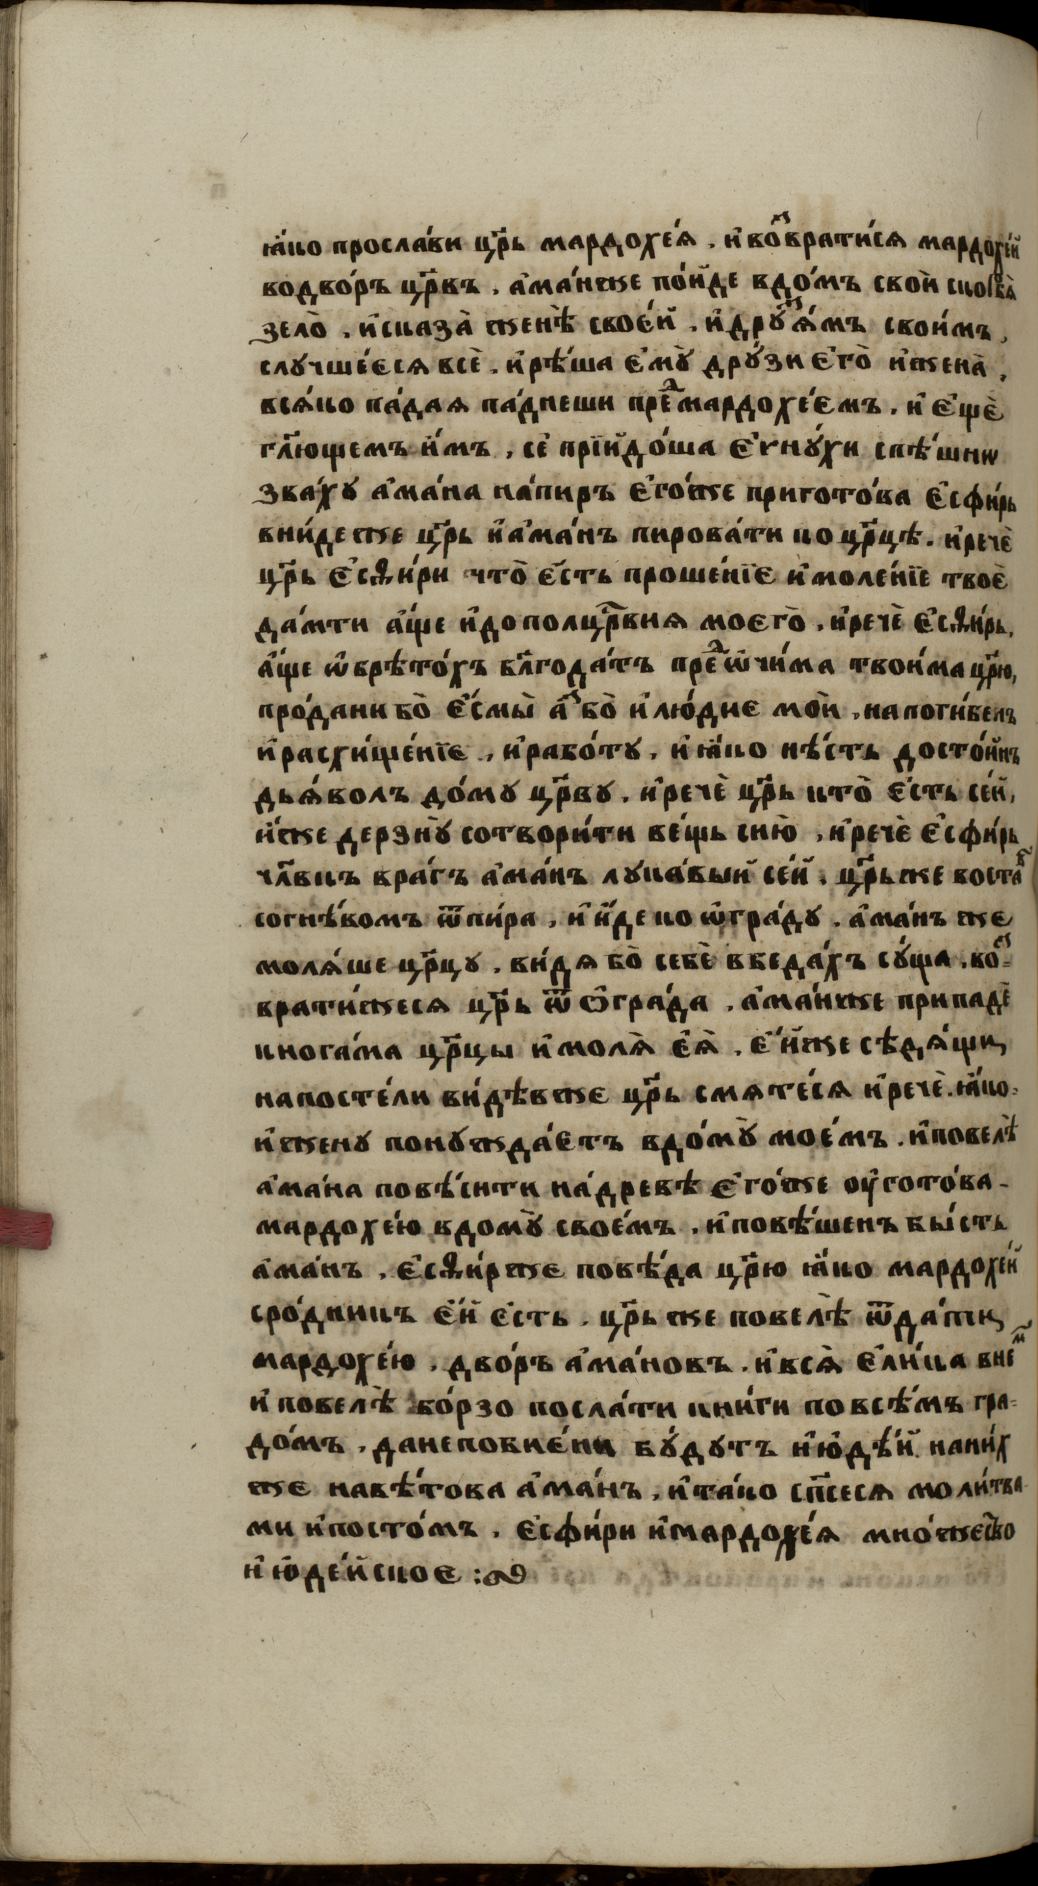 ꙗ҆́ко просла́ви цр҃ь мардохе́ѧ . и҆ воⷥврати́сѧ мардохе́й
водво́ръ цр҃въ . а҆ма́нже по́йде вдо́мъ сво́и скорбѧ̀
ѕело̀ . и҆сказа̀ женѣ̀ свое́й . и҆дрꙋⷥѧ́мъ свои́мъ ,
случше́есѧ всѐ . и҆рѣ́ша є҆мꙋ̀ дрꙋ́зи є҆го̀ и҆жена̀ ,
всѧ́ко па́даѧ па́дпеши преⷣмардохе́емъ . и҆ є҆щѐ
гл҃ющемъ и҆́мъ , сѐ прїидо́ша є҆ѵнꙋ́хи спѣ́шнѡ
зва́хꙋ а҆ма́на на́пиръ є҆го́же пригото́ва є҆сфи́рь
вни́деже цр҃ь и҆а҆ма́нъ пирова́ти ко цр҃цѣ . и҆речѐ
цр҃ь є҆сѳи́ри что̀ є҆́сть проше́нїе и҆моле́нїе твоѐ
да́мти а҆́ще и҆дополцр҃вия моего̀ . и҆речѐ є҆сѳи́рь ,
а҆́ще ѡ҆брѣто́хъ бл҃года́ть преⷣѡ҆чи́ма твои́ма цр҃ю ,
про́дани бо̀ є҆смы̀ а҆́зъ бо̀ и҆ лю́дие моѝ , на поги́бель
и҆расхище́нїе , и҆рабо́тꙋ . и҆ ꙗ҆́ко нѣ́сть досто́инъ
дья́волъ до́мꙋ цр҃вꙋ . и҆речѐ цр҃ь кто̀ є҆́сть се́й ,
и҆́же дерзнꙋ̀ сотвори́ти ве́щь сию̀ , и҆речѐ є҆сфи́рь
чл҃вкъ вра́гъ а҆ма́нъ лꙋка́вый се́й . цр҃ьже востаⷡ
согнѣ́вомъ ѿпи́ра , и҆ и҆́де ко ѡ҆гра́дꙋ . а҆ма́нъ же
молѧ́ше цр҃цꙋ . ви́дѧ бо̀ себѐ вбеда́хъ сꙋ́ща . воⷥ=
врати́жесѧ цр҃ь ѿ ѻ҆гра́да . а҆ма́нже припадѐ
кнога́ма цр҃цы и҆молѧ̀ є҆ѧ̀ . є҆́йже сѣдѧ́щи ,
напосте́ли ви́дѣвже цр҃ь смѧте́сѧ и҆речѐ . ꙗ҆́ко=
и҆женꙋ понꙋжда́етъ вдо́мꙋ̀ мое́мъ . и҆повелѣ̀
а҆ма́на повѣ́сити на́древѣ є҆го́же ᲂу҆гото́ва -
мардохе́ю вдомꙋ̀ свое́мъ . и҆повѣ́шенъ бы́сть
а҆ма́нъ . є҆сѳи́рже повѣ́да цр҃ю ꙗ҆́ко мардохе́й
сро́дникъ є҆́й є҆́сть . цр҃ь же повелѣ̀ ѿда́ти ,
мардохе́ю . дво́ръ а҆ма́новъ . и҆всѧ̀ є҆ли́ка внеⷨ
и҆ повелѣ̀ бо́рзо посла́ти кни́ги повсѣ́мъ гра=
до́мъ . данепобие́ни бꙋ́дꙋтъ и҆ю҆дѣ́й . нани́х
же навѣ́това а҆ма́нъ . и҆та́ко сп҃сесѧ моли́тва-
ми и҆посто́мъ . є҆сфи́ри и҆мардохе́ѧ мно́жеⷭ҇во
и҆ ю҆де́йское :~